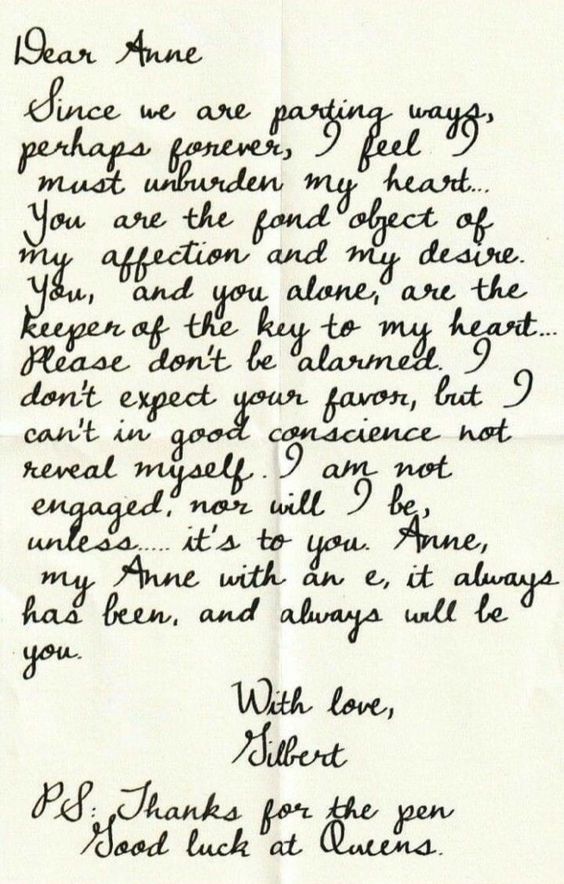 Dear Anne
Since we are parting ways,
perhaps forever, I feel I
must unburden my heart...
You are the fond object of
my affection and my desire.
You, and you alone, are the
keeper of the key to my heart...
Please don't be alarmed. I
don't expect your favor, but I
can't in good conscience not
reveal myself. I am not
engaged, nor will I be,
unless..... it's to you. Anne,
my Anne with an e, it always
has been, and always will be
you.
With love,
Gilbert
PS: Thanks for the pen
Good luck at Queens.